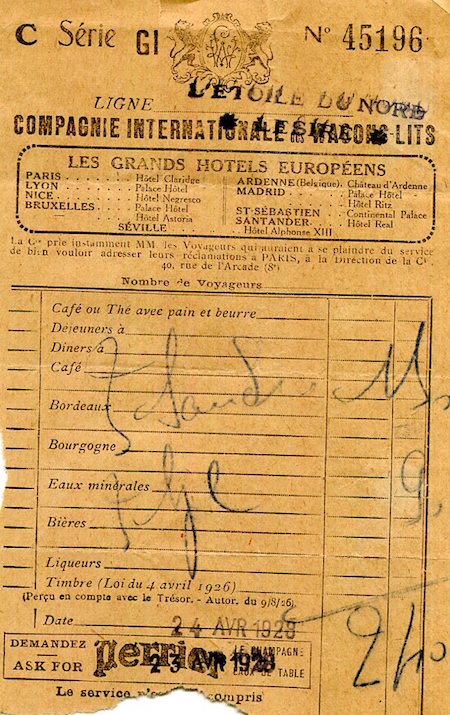 C Série GI Nº 45196
LIGNE L'ETOILE DU NORD
COMPAGNIE INTERNATIONALE DES WAGONS-LITS
LES GRANDS HOTELS EUROPÉENS
PARIS . . . . . Hôtel Claridge
LYON . . . . . Palace Hôtel
NICE . . . . . Hôtel Negresco
BRUXELLES . . . . . Palace Hôtel
Hôtel Astoria
SÉVILLE
ARDENNE (Belgique). Château d'Ardenne
MADRID . . . . . Palace Hôtel
Hôtel Ritz
ST-SÉBASTIEN . . Continental Palace
SANTANDER . . . . Hôtel Real
Hôtel Alphonse XIII
La Cie prie instamment MM. les Voyageurs qui auraient à se plaindre du service
de bien vouloir adresser leurs réclamations à PARIS, à la Direction de la Cie,
40, rue de l'Arcade (8e)
Nombre de Voyageurs
Café ou Thé avec pain et beurre
Déjeuners à
Diners à
Café
Bordeaux
Bourgogne
Eaux minérales
Bières
Liqueurs
Timbre (Loi du 4 avril 1926)
(Perçu en compte avec le Trésor. - Autor. du 9/8/26)
Date 24 AVR 1928
DEMANDEZ Perrier LE CHAMPAGNE
ASK FOR 23 AVR 1928 EAUX DE TABLE
Le service n'est compris